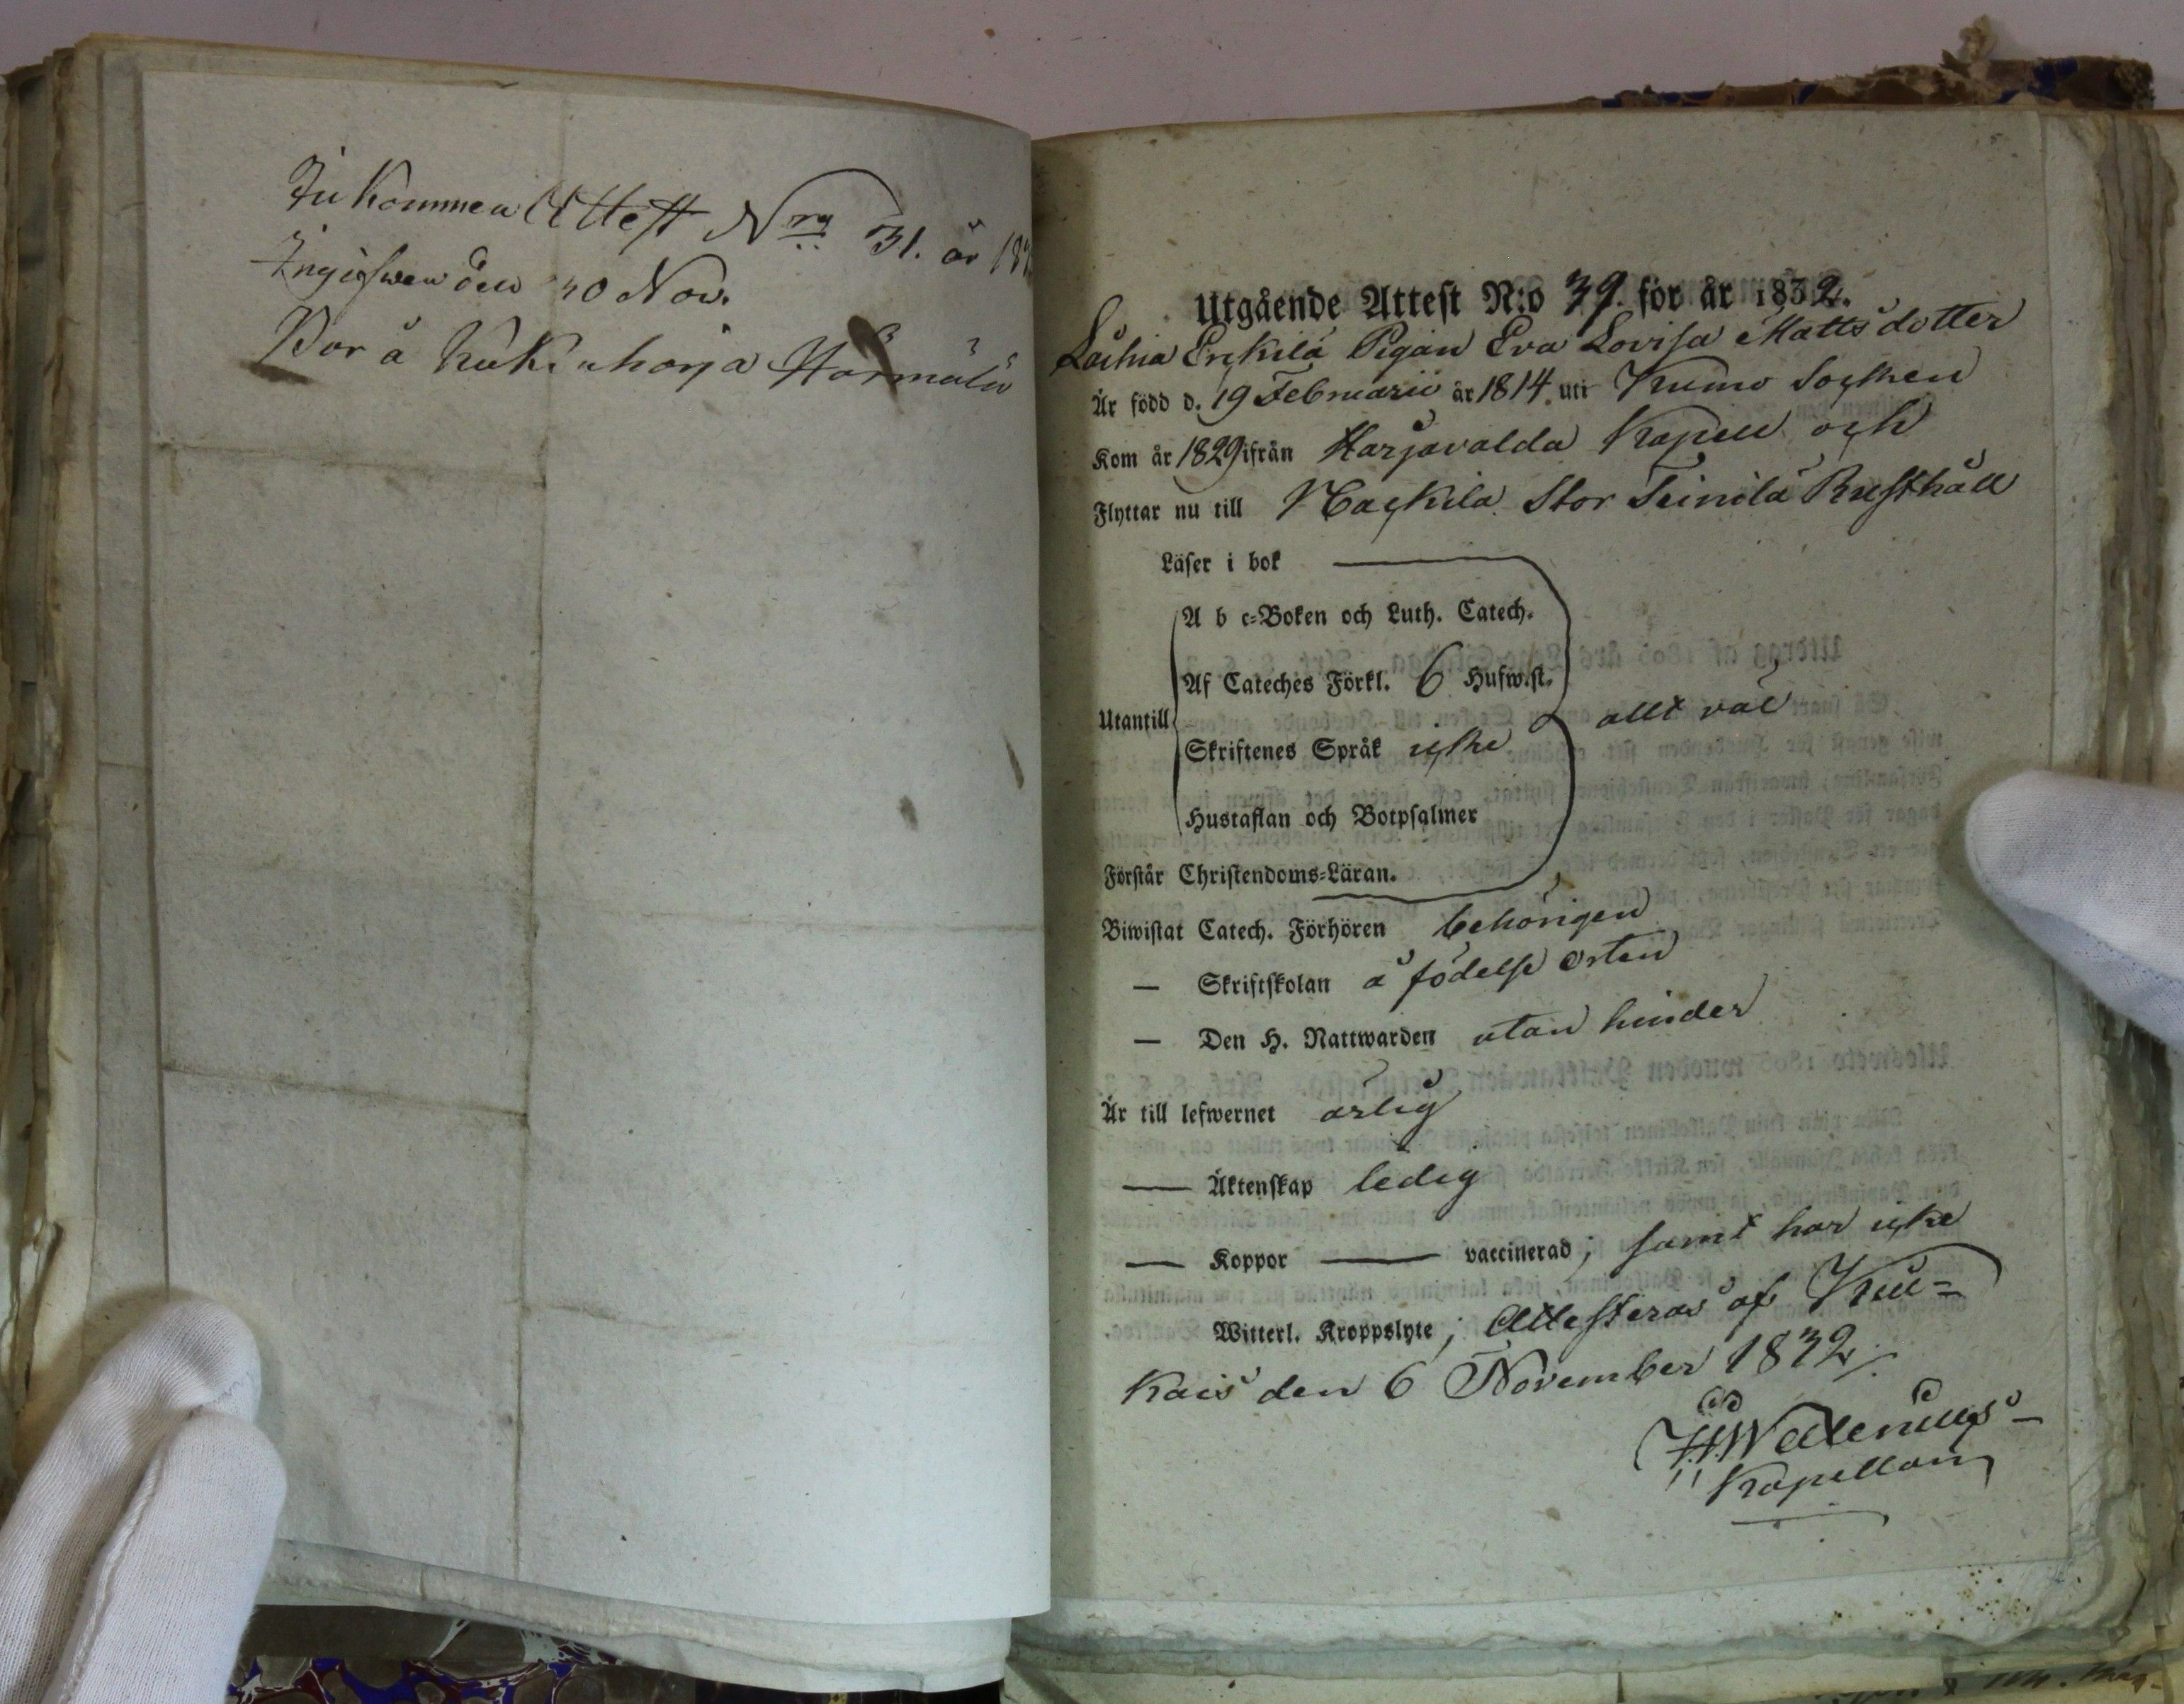 Inkommen Attest Nro 31. år 18
Ingifwen den 40 Nov.
Bor å Härmälä
Utgående Attest N:o 39. för år 1832.
Lächiä Erkilä Pigan Eva Lovisa Mattsdotter
Är född d. 19 Februarii år 1814. uti Kumo Sochen
Kom år 1829 ifrån Harjavalda Kapell och
Flyttar nu till Nackila Stor Teinilä Rusthåll
Läser i bok
A b c-Boken och Luth. Catech.
Af Cateches Förkl. 6 Hufw.st.
Utantill allt väl
Skriftenes Språk icke
Hustaflan och Botpsalmer
Förstår Christendoms-Läran.
Biwistat Catech. Förhören behörigen
— Skriftskolan å födelse orten
— Den H. Nattwarden utan hinder
Är till lefwernet ärlig
— Äktenskap ledig
— Koppor — vaccinerad; samt har icke
Witterl. Kroppslyte; Attesteras af Kiu-
kais den 6 November 1832.
Kapellan